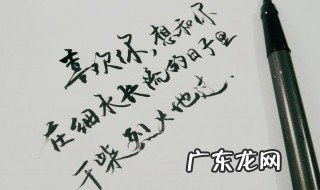 喜欢你,想和你
在细水长流的日子里
干柴烈火地过.
广东龙网